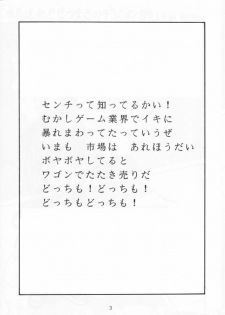 センチって知ってるかい！
むかしゲーム業界でイキに
暴れまわってたっていうぜ
いまも　市場は　あれほうだい
ボヤボヤしてると
ワゴンでたたき売りだ
どっちも！どっちも！
どっちもどっちも！
3